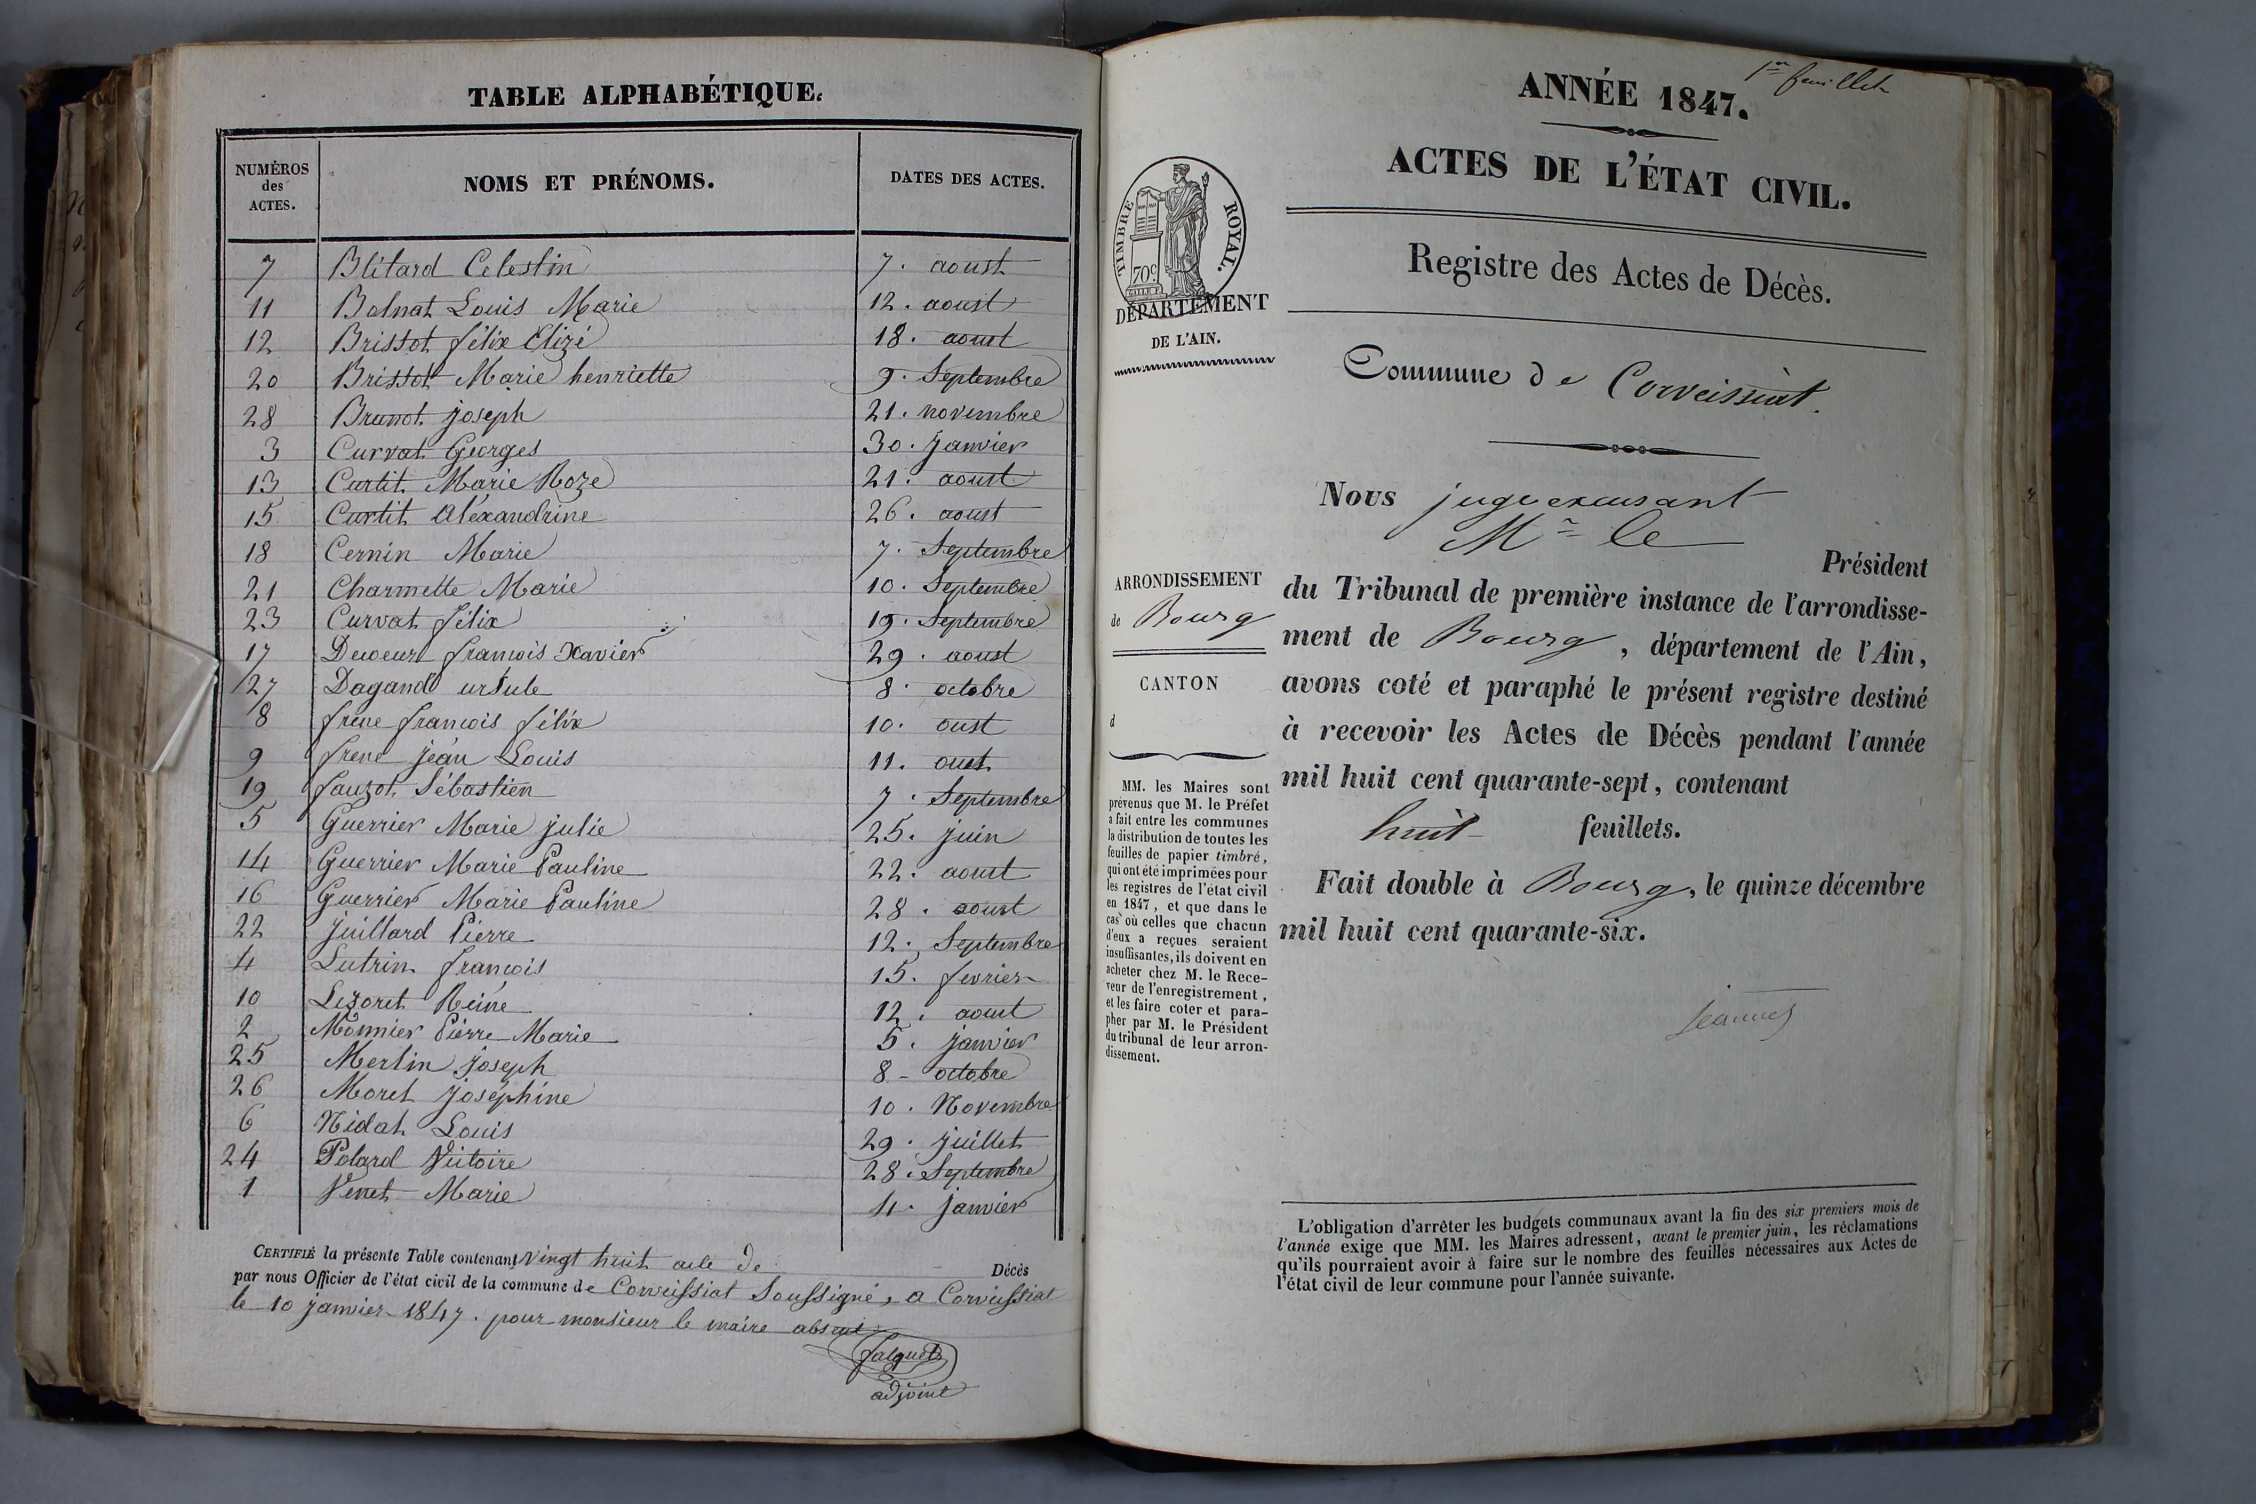 TABLE ALPHABÉTIQUE.
NUMÉROS des ACTES. NOMS ET PRÉNOMS. DATES DES ACTES.
7 Blétard Celestin 7. aoust
11 Bolnat Louis Marie 12. aoust
12 Brissot félix Elizé 18. aoust
20 Brissot Marie henriette 9. Septembre
28 Brunot joseph 21. novembre
3 Curvat Georges 30. Janvier
13 Curtit Marie Roze 21. aoust
15 Curtit aléxandrine 26. aoust
18 Cernin Marie 7. Septembre
21 Charmette Marie 10. Septembre
23 Curvat félix 19. Septembre
17 francois Xavier 29. aoust
27 Dagand ursule 8. octobre
8 frene francois félix 10. oust
9 frene jean Louis 11. oust
19 fauzot Sébastien 7. Septembre
5 Guerrier Marie julie 25. juin
14 Guerrier Marie Pauline 22. aoust
16 Guerrier Marie Pauline 28. aoust
22 Juillard Pierre 12. Septembre
4 Lutrin francois 15. fevrier
10 Lizoret Reine 12. aoust
2 Monnier Pierre Marie 5. janvier
25 Merlin joseph 8 - octobre
26 Moret joséphine 10. Novembre
6 Nidat Louis 29. juillet
24 Polard Victoire 28. Septembre
1 Venet Marie 4. janvier
CERTIFIÉ la présente Table contenant vingt huit acte de Décès
par nous Officier de l'état civil de la commune de Corveissiat Soussigné, a Corveissiat
le 10 janvier 1847. pour monsieur le maire absent
falquet
adjoint
1er feuillet
ANNÉE 1847.
ACTES DE L'ÉTAT CIVIL.
TIMBRE ROYAL.
70c
DÉPARTEMENT
DE L'AIN.
Registre des Actes de Décès.
Commune de Corveissiat.
Nous juge excusant
Mr le
Président
du Tribunal de première instance de l'arrondisse-
ment de Bourg, département de l'Ain,
avons coté et paraphé le présent registre destiné
à recevoir les Actes de Décès pendant l'année
mil huit cent quarante-sept, contenant
huit feuillets.
Fait double à Bourg, le quinze décembre
mil huit cent quarante-six.
ARRONDISSEMENT
de Bourg
CANTON
d
MM. les Maires sont
prévenus que M. le Préfet
a fait entre les communes
la distribution de toutes les
feuilles de papier timbré,
qui ont été imprimées pour
les registres de l'état civil
en 1847, et que dans le
cas où celles que chacun
d'eux a reçues seraient
insuffisantes, ils doivent en
acheter chez M. le Rece-
veur de l'enregistrement,
et les faire coter et para-
pher par M. le Président
du tribunal de leur arron-
dissement.
L'obligation d'arrêter les budgets communaux avant la fin des six premiers mois de
l'année exige que MM. les Maires adressent, avant le premier juin, les réclamations
qu'ils pourraient avoir à faire sur le nombre des feuilles nécessaires aux Actes de
l'état civil de leur commune pour l'année suivante.